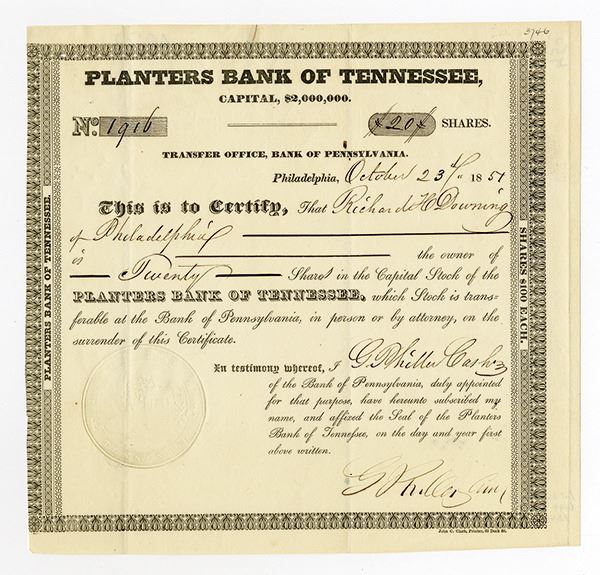 3746
PLANTERS BANK OF TENNESSEE,
CAPITAL, $2,000,000.
No. 1916
20 SHARES.
TRANSFER OFFICE, BANK OF PENNSYLVANIA.
Philadelphia, October 23d 1851
This is to Certify, That Richard H Downing
of Philadelphia
is the owner of
Twenty Shares in the Capital Stock of the
PLANTERS BANK OF TENNESSEE, which Stock is trans-
ferable at the Bank of Pennsylvania, in person or by attorney, on the
surrender of this Certificate.
In testimony whereof, I G Philler Cashr
of the Bank of Pennsylvania, duly appointed
for that purpose, have hereunto subscribed my
name, and affixed the Seal of the Planters
Bank of Tennessee, on the day and year first
above written.
G Philler
John C. Clark, Printer,
PLANTERS BANK OF TENNESSEE.
SHARES $100 EACH.